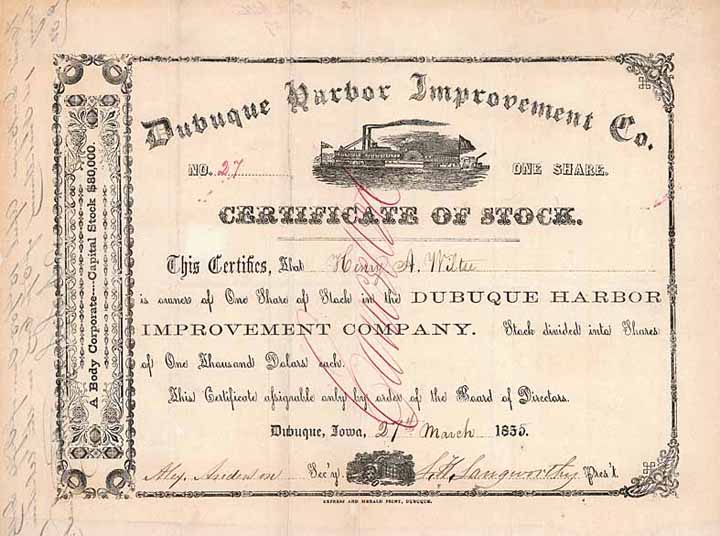 Dubuque Harbor Improvement Co.
NO. 27 ONE SHARE.
CERTIFICATE OF STOCK.
This Certifies, that Henry A. Wiltse
is owner of One Share of Stock in the DUBUQUE HARBOR
IMPROVEMENT COMPANY. Stock divided into Shares
of One Thousand Dolars each.
This Certificate assignable only by order of the Board of Directors.
Dubuque, Iowa, 27th March 1855.
Alex Anderson Sec'y L. H. Langworthy Pres't
EXPRESS AND HERALD PRINT, DUBUQUE.
A Body Corporate---Capital Stock $80,000.
Cancelled